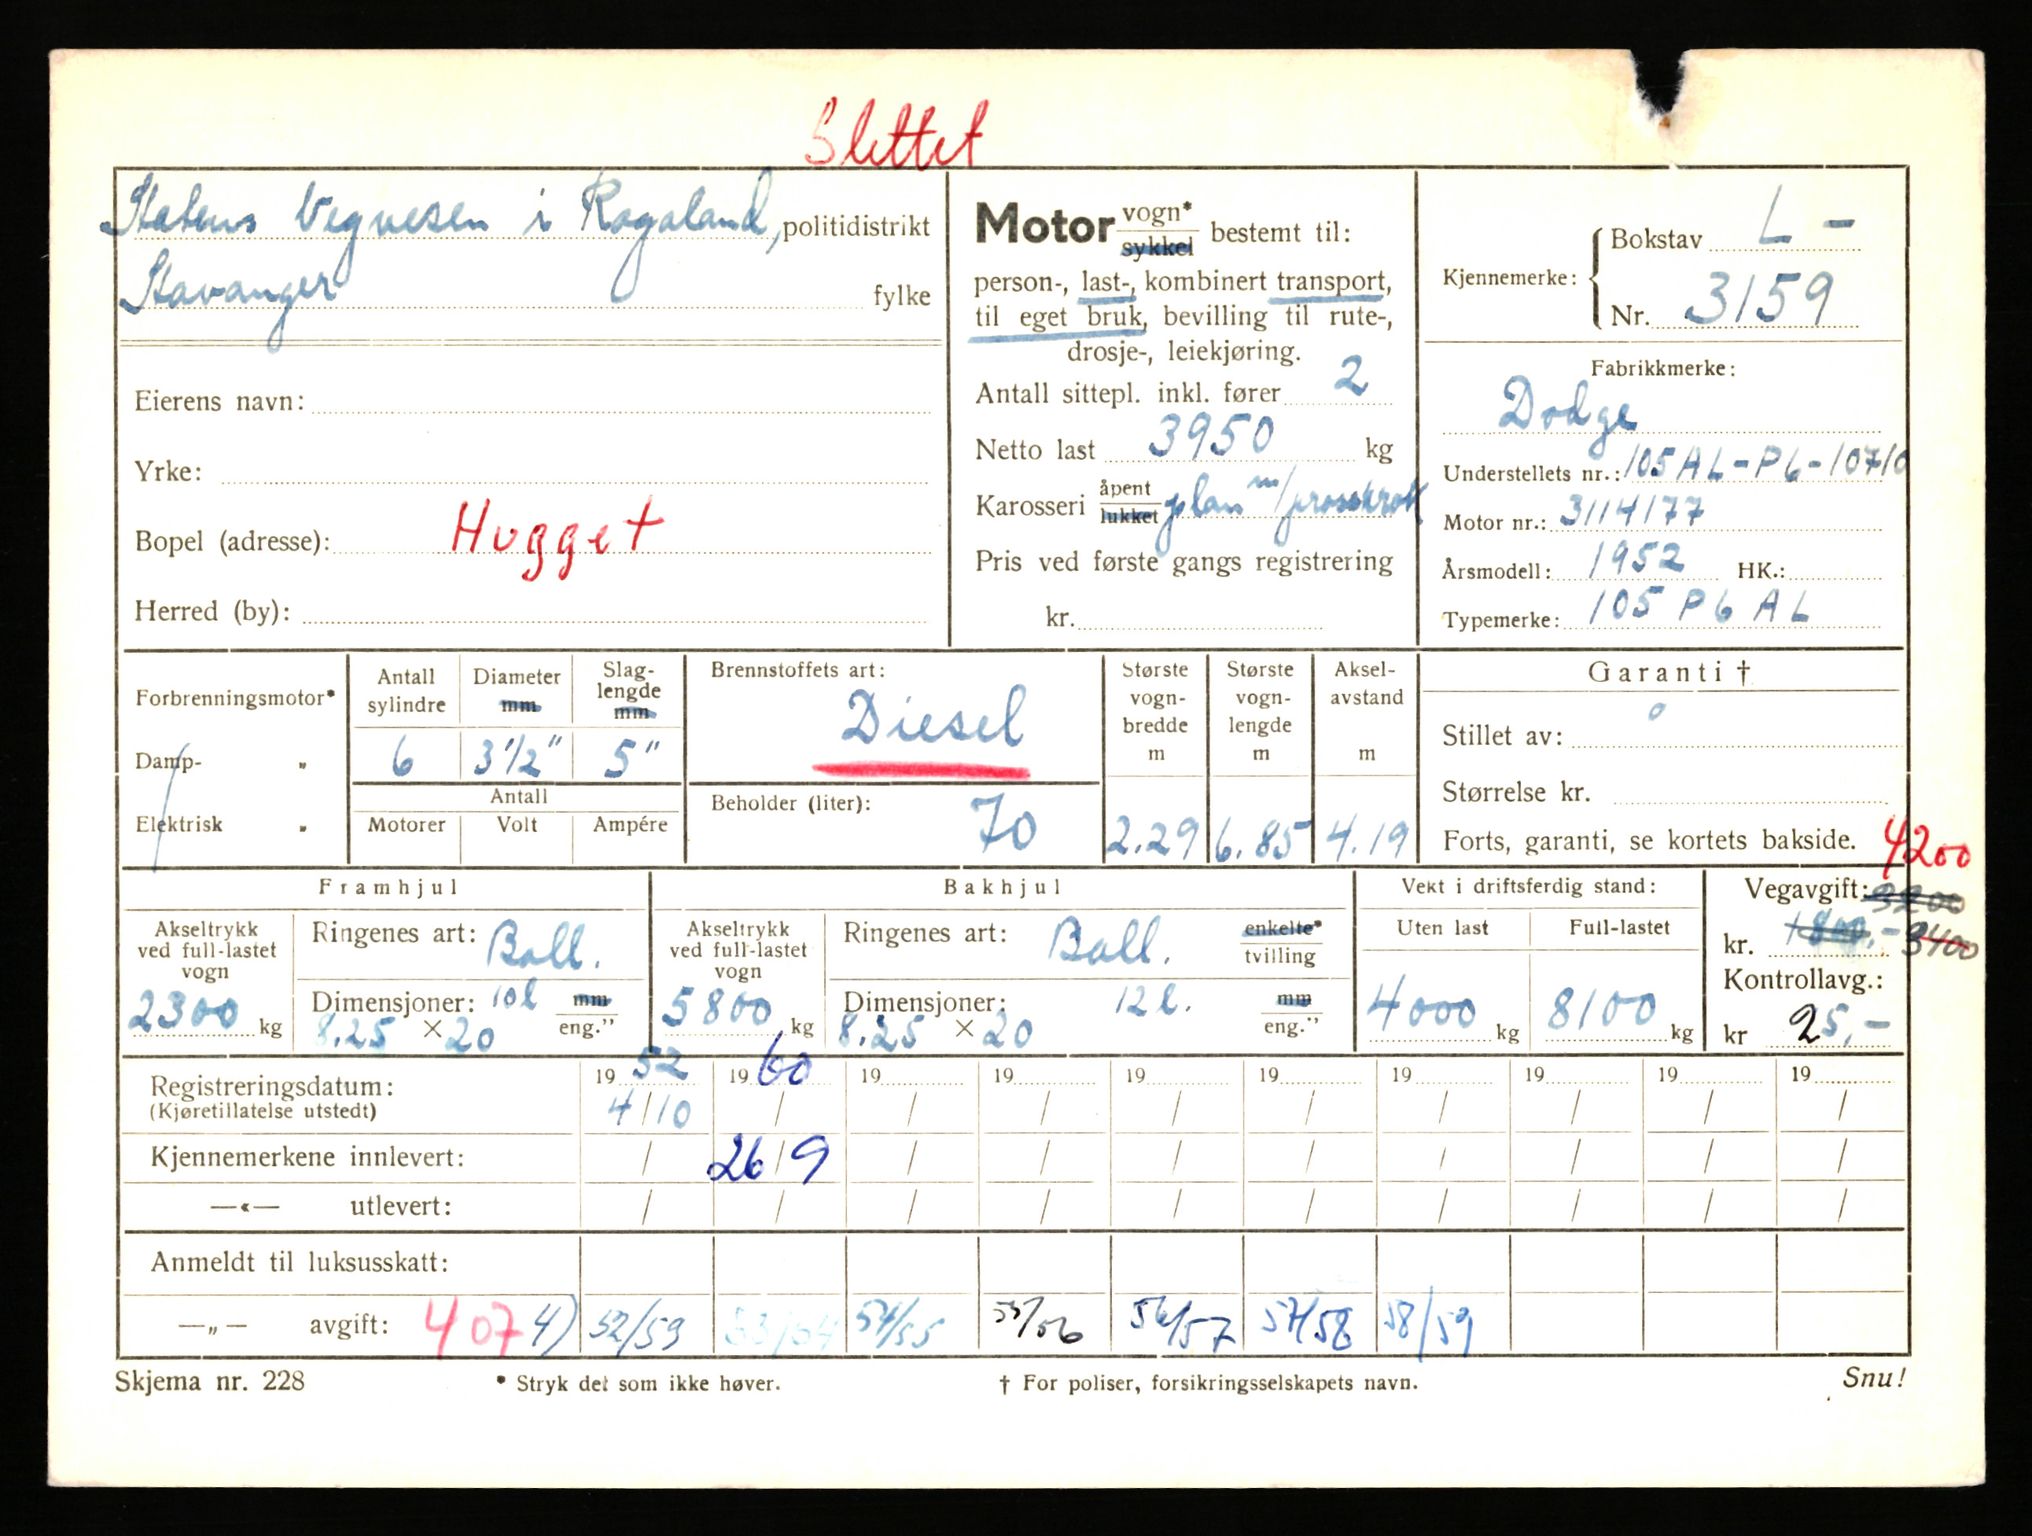 Slettet
Statens Vegvesen i Rogaland, politidistrikt
Stavanger fylke
Eierens navn:
Yrke:
Bopel (adresse): Hugget
Herred (by):
Motor vogn* sykkel bestemt til:
person-, last-, kombinert transport,
til eget bruk, bevilling til rute-,
drosje-, leiekjøring.
Antall sittepl. inkl. fører 2
Netto last 3950 kg
Karosseri åpent lukket plan m/
Pris ved første gangs registrering
kr.
Kjennemerke: Bokstav L -
Nr. 3159
Fabrikkmerke:
Dodge
Understellets nr.: 105AL-P6-10710
Motor nr.: 3114177
Årsmodell: 1952 HK.:
Typemerke: 105 P6 AL
Forbrenningsmotor*
Damp- „
Elektrisk „
Antall sylindre
6
Diameter mm
3 1/2"
Slag-lengde mm
5"
Antall
Motorer Volt Ampére
Brennstoffets art:
Diesel
Beholder (liter): 70
Største vogn-bredde m
2.29
Største vogn-lengde m
6.85
Aksel-avstand m
4.19
Garanti †
Stillet av:
Størrelse kr.
Forts, garanti, se kortets bakside.
Framhjul
Akseltrykk ved full-lastet vogn
2300 kg
Ringenes art: Ball.
Dimensjoner: 10l mm
8.25 × 20 eng."
Bakhjul
Akseltrykk ved full-lastet vogn
5800 kg
Ringenes art: Ball. enkelte* tvilling
Dimensjoner: 12l. mm
8.25 × 20 eng."
Vekt i driftsferdig stand:
Uten last Full-lastet
4000 kg 8100 kg
4200
Vegavgift: 3200
kr. 1800,- 3400
Kontrollavg.:
kr 25,-
Registreringsdatum: 19 52 19 60 19 19 19 19 19 19 19 19
(Kjøretillatelse utstedt) 4/10 / / / / / / / / /
Kjennemerkene innlevert: / 26/9 / / / / / / / /
—«— utlevert: / / / / / / / / / /
Anmeldt til luksusskatt:
—„— avgift: 407 4) 52/53 53/54 54/55 55/56 56/57 57/58 58/59
Skjema nr. 228 * Stryk det som ikke høver. † For poliser, forsikringsselskapets navn. Snu!